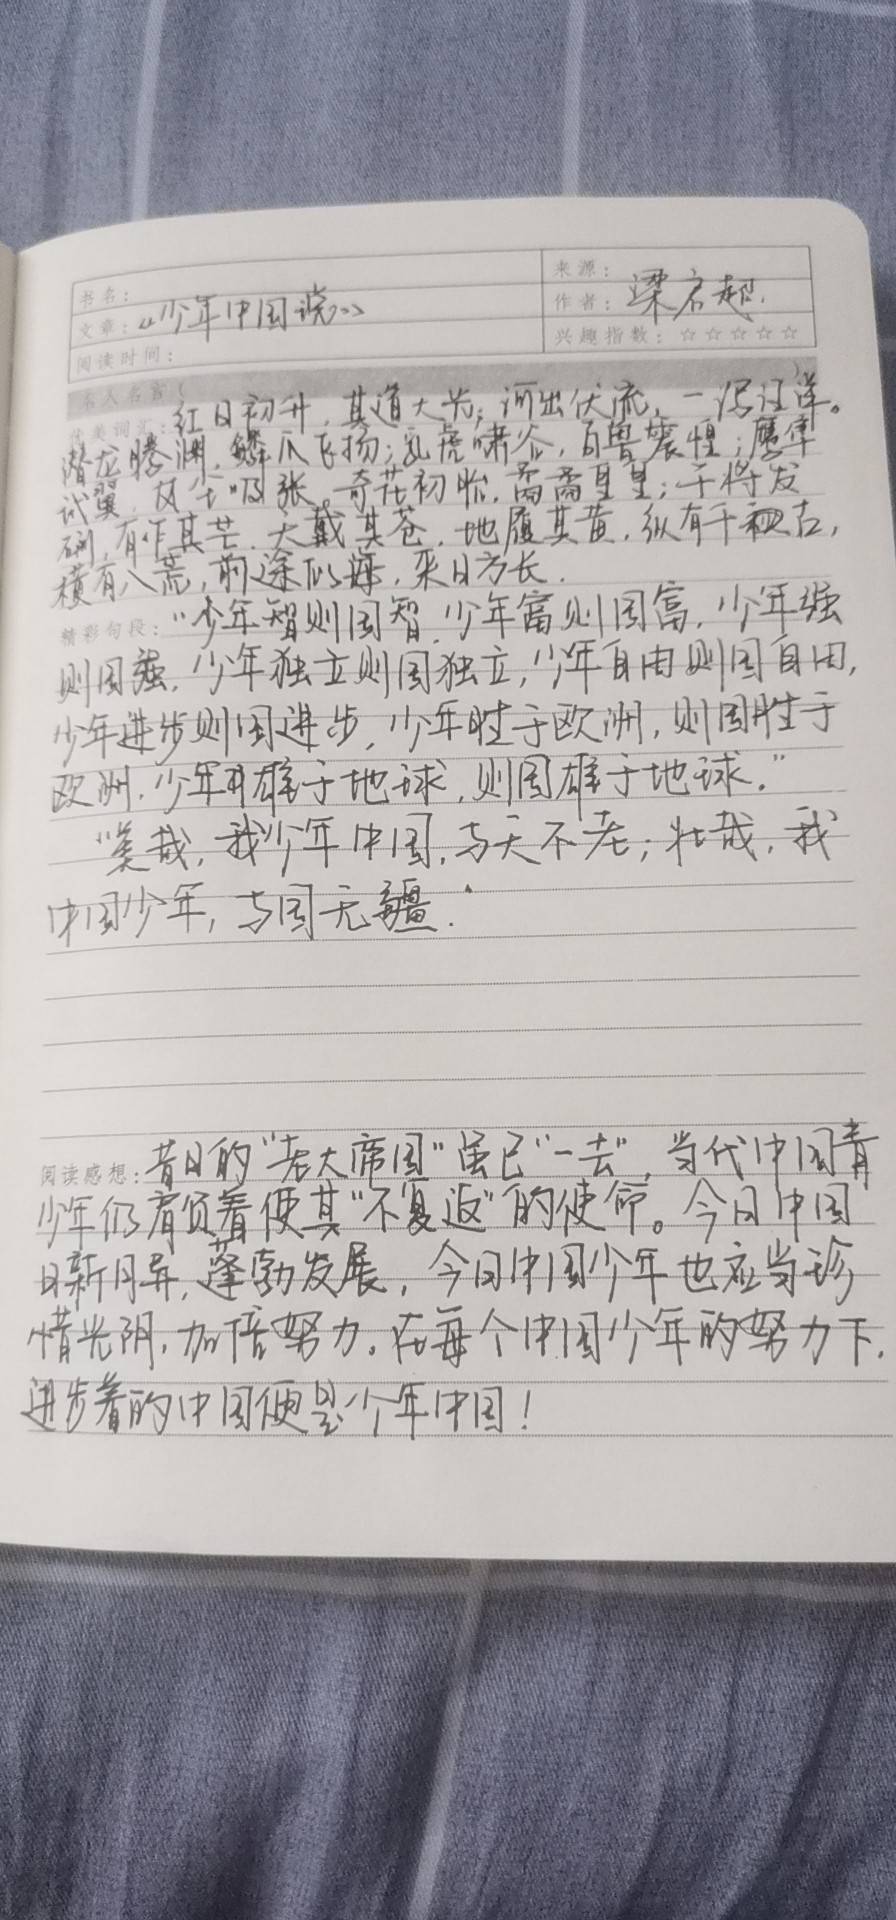 书名：
来源：
文章：《少年中国说》
作者：梁启超.
阅读时间：
兴趣指数：☆☆☆☆☆
名人名言
优美词汇：红日初升，其道大光；河出伏流，一泻汪洋。
潜龙腾渊，鳞爪飞扬；乳虎啸谷，百兽震惶；鹰隼
试翼，风尘吸张。奇花初胎，矞矞皇皇；干将发
硎，有作其芒。天戴其苍，地履其黄，纵有千古，
横有八荒，前途似海，来日方长.
精彩句段：“少年智则国智，少年富则国富，少年强
则国强，少年独立则国独立，少年自由则国自由，
少年进步则国进步，少年胜于欧洲，则国胜于
欧洲，少年雄于地球，则国雄于地球.”
“美哉，我少年中国，与天不老；壮哉，我
中国少年，与国无疆.”
阅读感想：昔日的“老大帝国”虽已“一去”，当代中国青
少年仍肩负着使其“不复返”的使命。今日中国
日新月异，蓬勃发展，今日中国少年也应当珍
惜光阴，加倍努力。在每个中国少年的努力下，
进步着的中国便是少年中国！